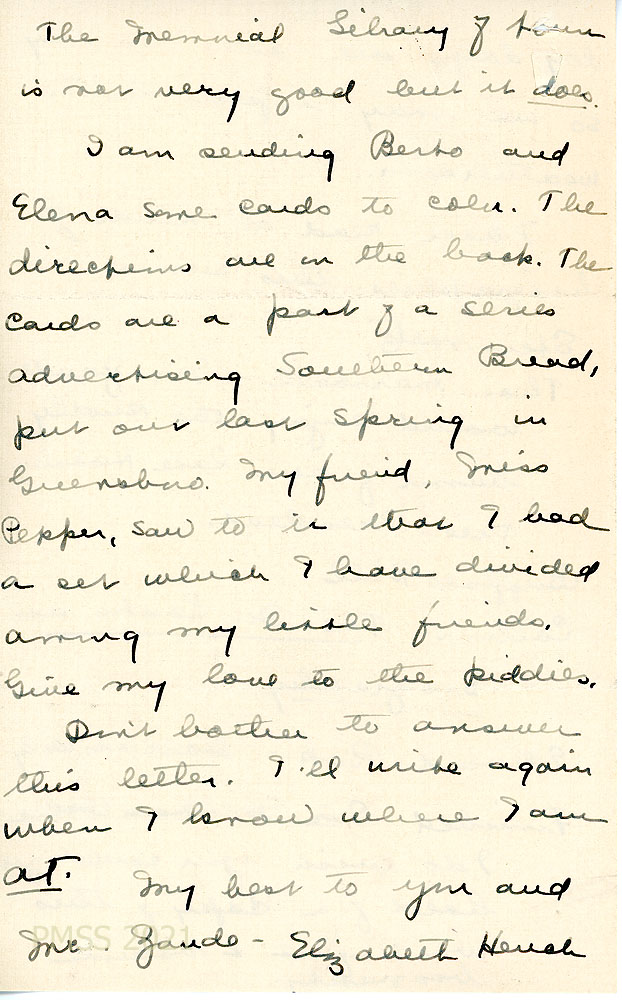 The Memorial Library of town
is not very good but it does.
I am sending Berto and
Elena some cards to color. The
directions are on the back. The
cards are a part of a series
advertising Southern Bread,
put out last Spring in
Greensboro. My friend, Miss
Pepper, saw to it that I had
a set which I have divided
among my little friends.
Give my love to the kiddies.
Don't bother to answer
this letter. I'll write again
when I know where I am
at.
My best to you and
Mr. Zande - Elizabeth Hench
PMSS 2021